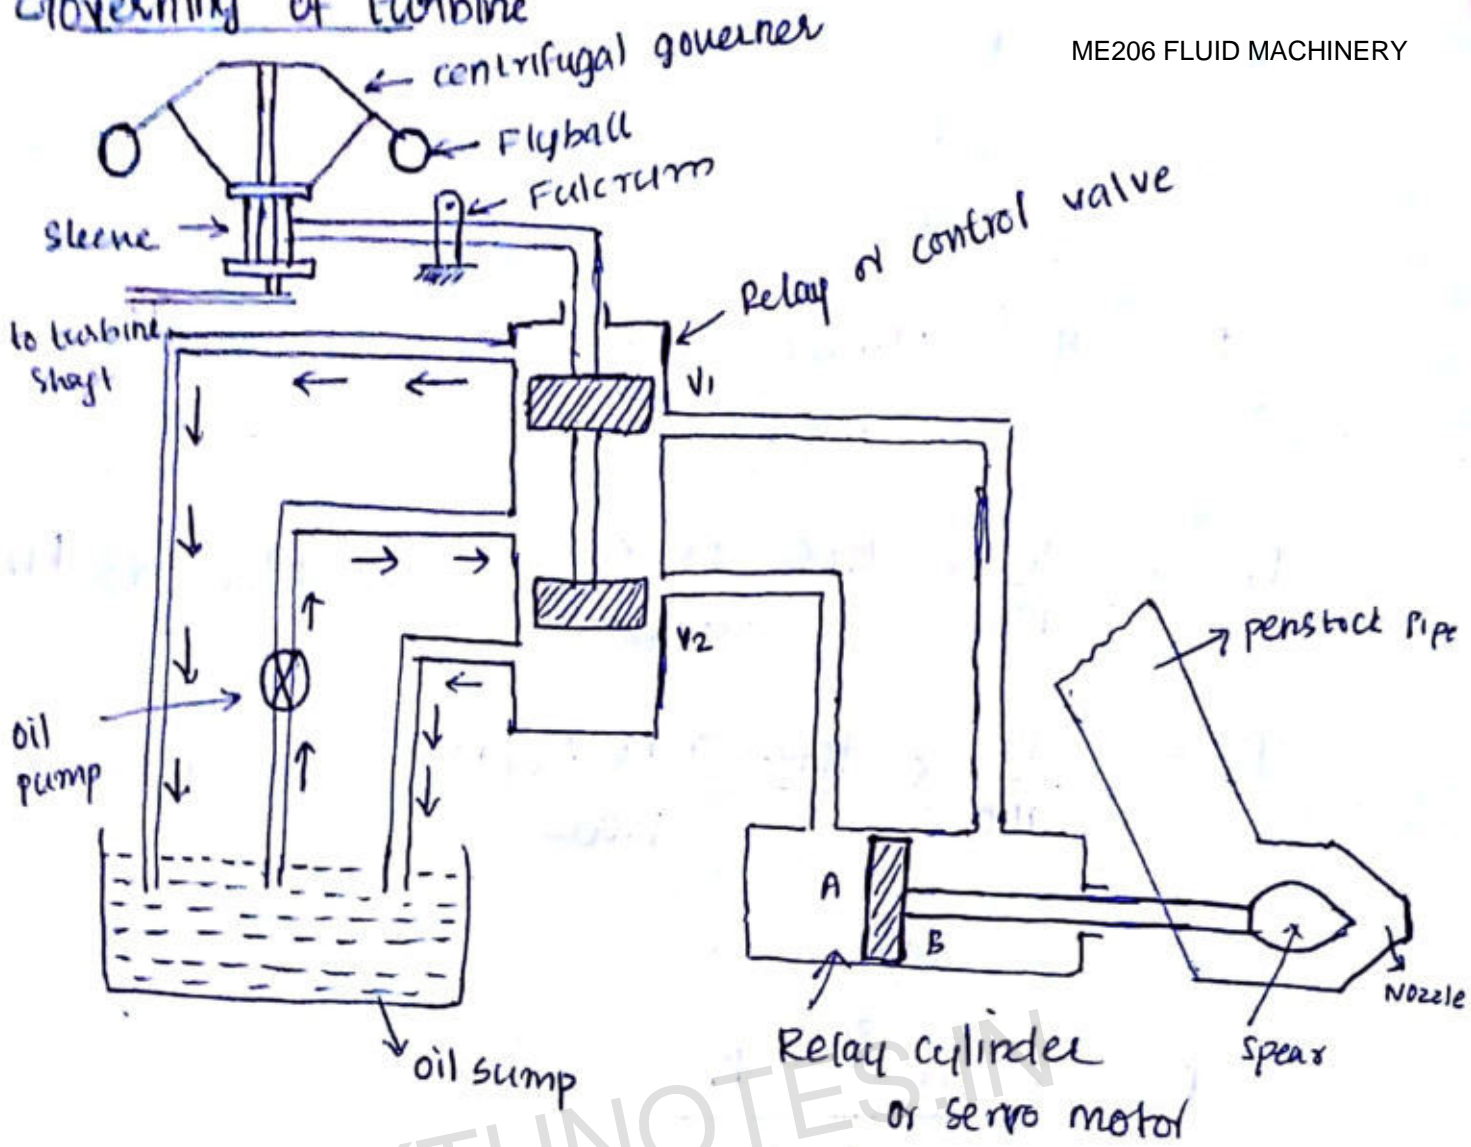 Governing of turbine
ME206 FLUID MACHINERY
centrifugal governer
Flyball
Fulcrum
Sleeve
Relay or control valve
to turbine
shaft
V1
V2
penstock Pipe
oil
pump
A
B
Nozzle
oil sump
Relay cylinder
or servo motor
spear
KTUNOTES.IN